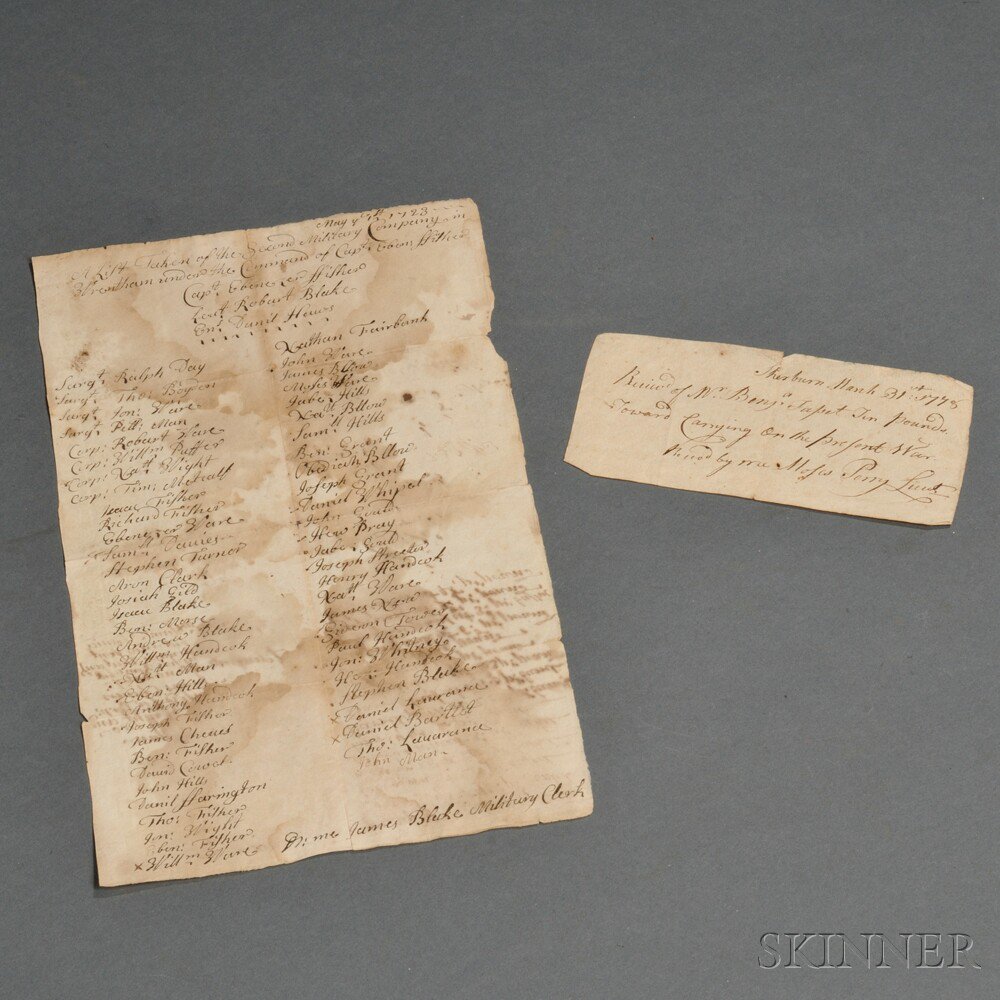 May 1723
A List Taken of the Second Military Company in
Wrentham under the Command of Capt. Eben: ffisher
Capt. Ebenezer ffisher
Leut Robart Blake
Ens: Danil Haws
Sargt. Ralph Day
Sargt. Tho: Boyden
Sargt. Jon: Ware
Sargt. Man
Corp: Robart Ware
Corp: Willm
Corp: Natt. Wight
Corp: Tim: Metcalf
Isaac Fisher
Richard Fisher
Ebenezer Ware
Samll. Davies
Stephen Turnor
Aron Clark
Josiah Gild
Isaac Blake
Ben: Morse
Andrew Blake
Willm: Handcok
Natt. Man
Eben: Hills
Anthony Handcok
Joseph Fisher
James Cheves
Ben: Fisher
David
John Hills
Danil ffarington
Tho: Fisher
Jon: Wight
Eben: Fisher
x Willm: Ware
Nathan Fairbank
John Ware
James Bllow
Moses Ware
Jabe: Hills
Natt. Bllow
Samll. Hills
Ben: Grant
Obediah Bllow
Joseph Grant
Danil Whipel
John
Hew Bray
Jabe: Gould
Joseph Streetor
Henry Handcok
Natt. Ware
James New
Gideon Tower
Paul Handcok
Jon: Whitney
Handcok
Stephen Blake
x Daniel Lawrance
x Daniel Bartlet
Tho: Lawarance
John Man
Pr: me James Blake Military Clerk
Sherburn March 31st: 1778
Recievd of Mr. Benja. Tapet Ten pounds
Toward Carrying On the present War
Recied by me Moses Perry Lieut
SKINNER